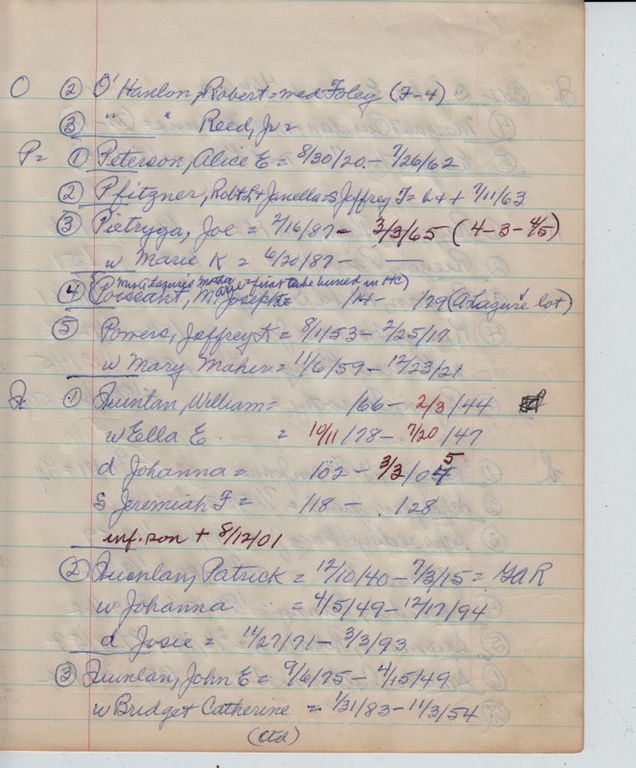 O ② O'Hanlon, Robert = med Foley (F-4)
③ " " Reed, Jr =
P = ① Peterson, Alice E = 8/30/20 - 7/26/62
② Pfitzner, Robt L + Janella = s Jeffrey F = b + + 7/11/63
③ Pietryga, Joe = 2/16/87 - 3/3/65 (4-3-4/5)
w Marie K = 6/20/87 -
(Mrs Lazure's = first to be buried in HC)
④ Poissant, M Joseph = /14 - /79 (A Lazure lot)
⑤ Powers, Jeffrey K = 8/1/53 - 2/25/17
w Mary Maher = 11/6/59 - 12/23/21
① Quinlan, William = /66 - 2/3/44
w Ella E = 10/11/78 - 7/20/47
d Johanna = /02 - 3/3/05
s Jeremiah F = /18 - /28
inf. son + 8/12/01
② Quinlan, Patrick = 12/10/40 - 7/3/15 = GAR
w Johanna = 4/5/49 - 12/17/94
d Josie = 11/27/71 - 3/3/93
③ Quinlan, John E = 9/6/75 - 4/15/49
w Bridget Catherine = 1/31/83 - 11/3/54
(ctd)